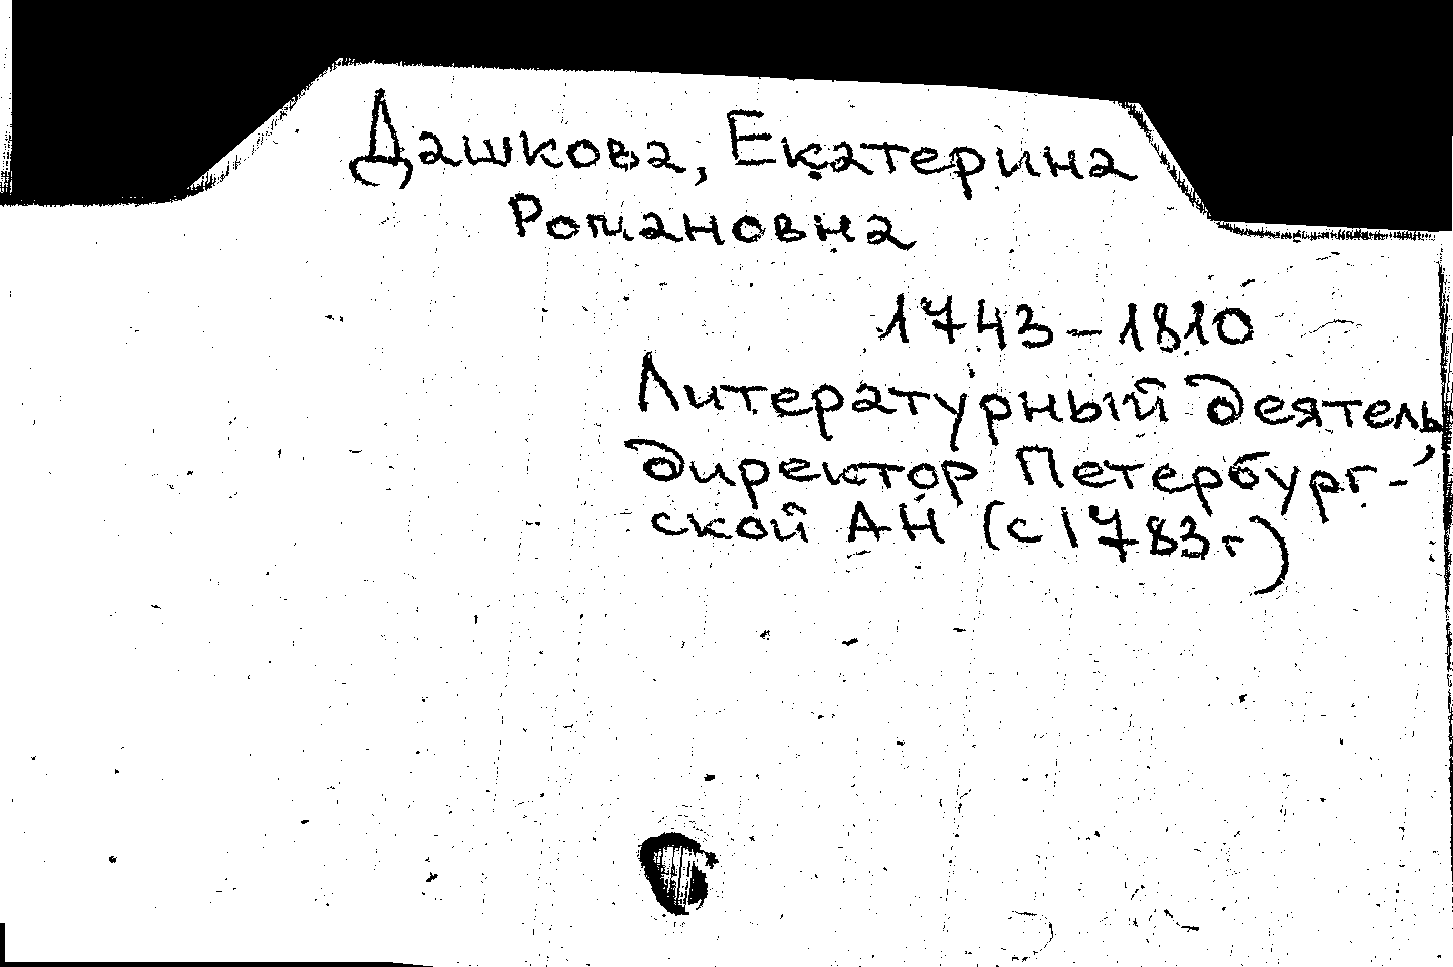 Дашкова, Екатерина
Романовна
1743-1810
Литературный деятель,
директор Петербург-
ской АН (с 1783г)